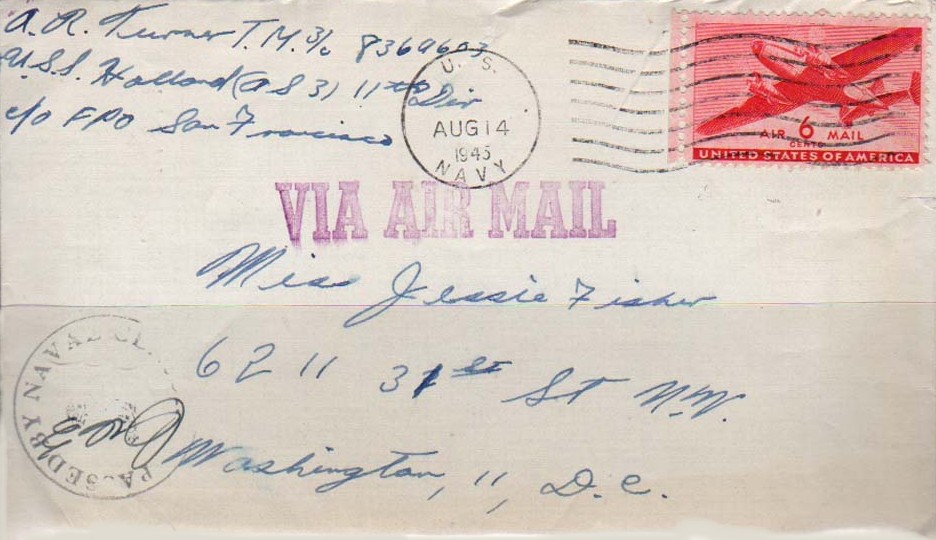 A. R. Turner T.M. 3/c 8369603
U.S.S. Holland (AS 3) 11th Div
c/o FPO San Francisco
U. S.
AUG 14
1945
NAVY
AIR 6 MAIL
CENTS
UNITED STATES OF AMERICA
VIA AIR MAIL
Miss Jessie Fisher
6211 31st St N.W.
Washington, 11, D.C.
PASSED BY NAVAL